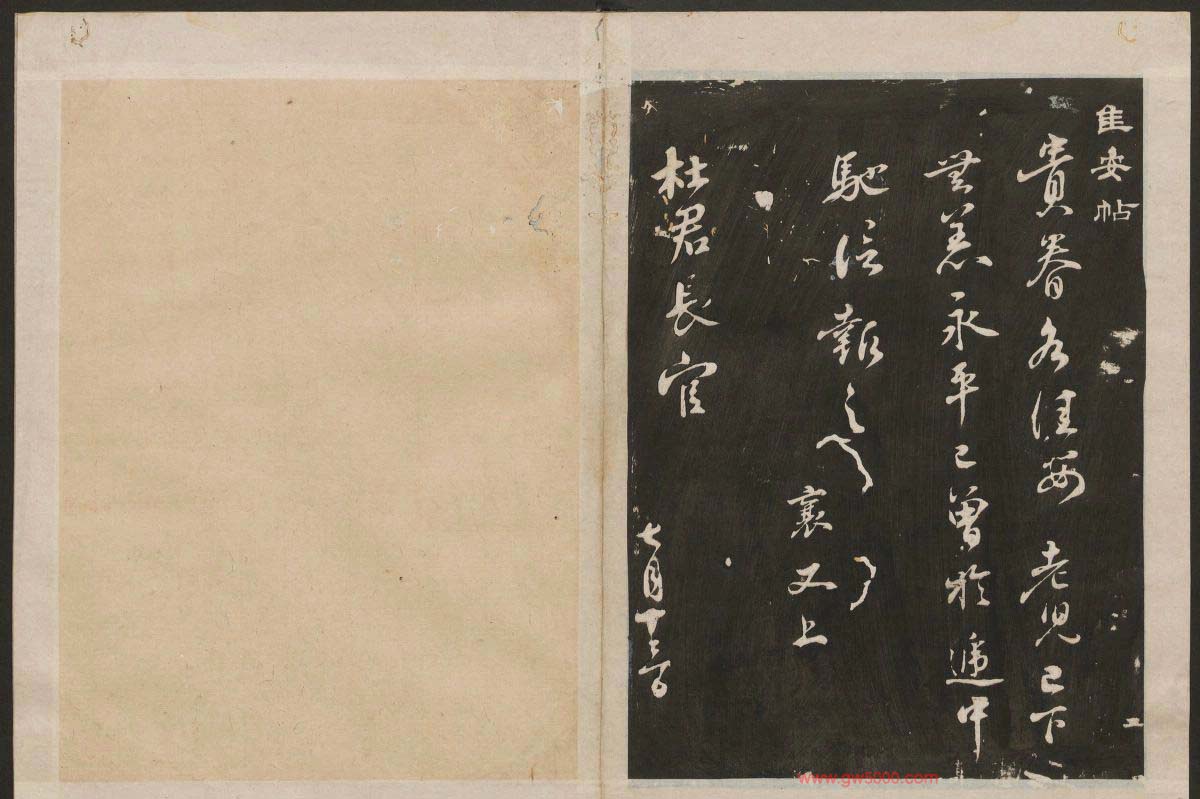 佳安帖
貴眷各佳安 老児已下
無恙永平已曾於遞中
馳信報之
襄又上
杜君長官
七月十三日
www.gw5000.com